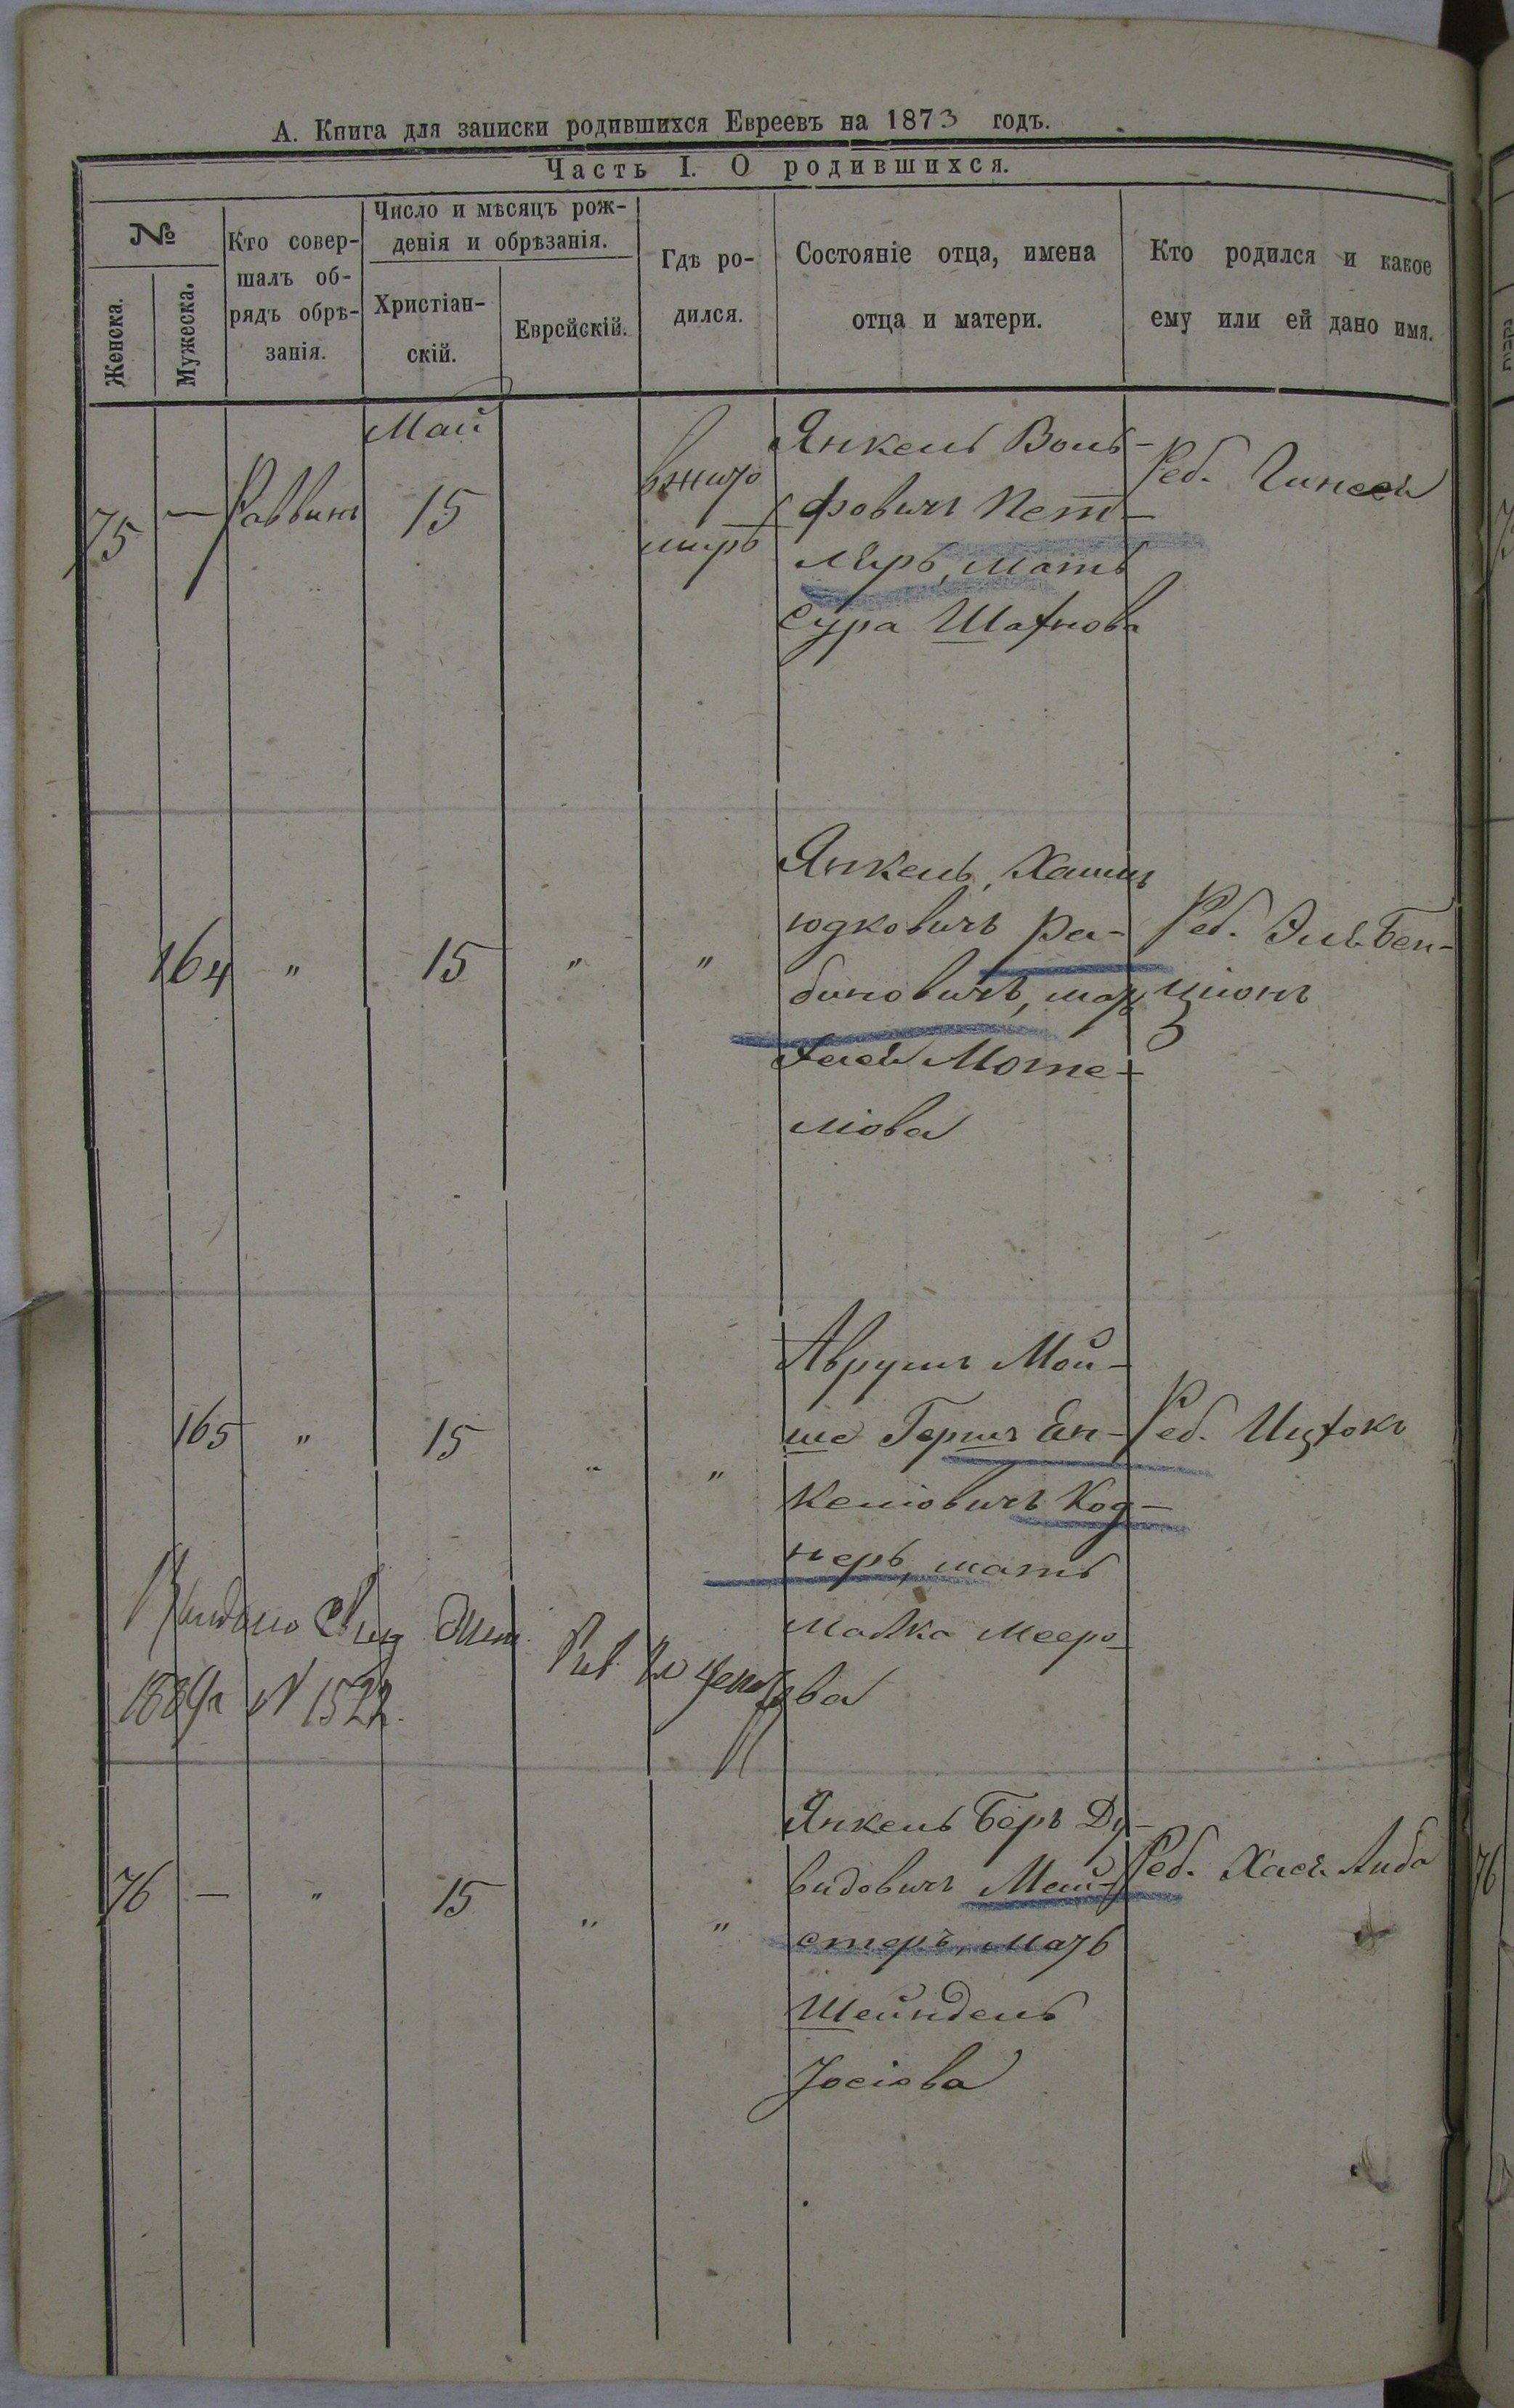 А. Книга для записки родившихся Евреевъ на 1873 годъ.
Часть I. О родившихся.
№
Женска.
Мужеска.
Кто совер-
шалъ об-
рядъ обрѣ-
занія.
Число и мѣсяцъ рож-
денія и обрѣзанія.
Христіан-
скій.
Еврейскій.
Гдѣ ро-
дился.
Состояніе отца, имена
отца и матери.
Кто родился и какое
ему или ей дано имя.
Май
75 — Раввинъ 15
вжито
миръ
Янкель Воль-
фовичъ Пет-
леръ, мать
Сура Шахнова
Реб.
164 " 15 " "
Янкель, Хаимъ
юдковичъ Ра-
биновичъ, мать
Моте-
ліова
Реб. Эль Бен-
ціонъ
165 " 15 " "
Аврумъ Мой-
ше Гершъ Ен-
келіовичъ Код-
неръ, мать
Малка Мееро-
ва
Реб. Ицхокъ
1889г. N 1522.
76 — " 15 " "
Янкель Беръ Ду-
видовичъ Май-
стеръ, мать
Шейндель
Іосіова
Реб. Хася Либа
76